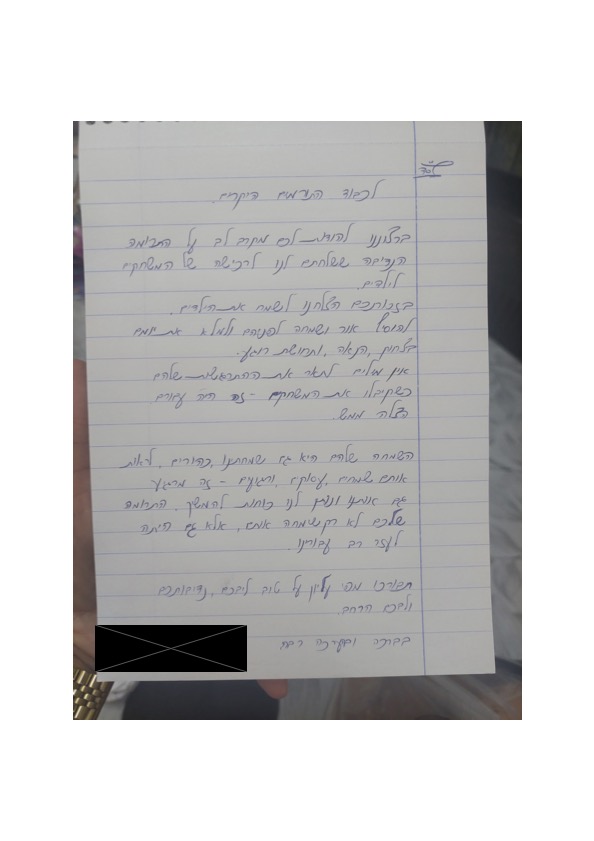 בס"ד
לכבוד התורמים היקרים.
ברצוננו להודות לכם מקרב לב על התרומה
הנדיבה ששלחתם לנו לרכישה של המשחקים
לילדים.
בזכותכם הצלחנו לשמח את הילדים,
להוסיף אור ושמחה לפניהם ולמלא את יומם
בצחוק, הנאה, ותחושת רוגע.
אין מילים לתאר את ההתרגשות שלהם
כשקיבלו את המשחקים - זה היה עבורם
הצלה ממש.
השמחה שלהם היא גם שמחתנו, כהורים, לראות
אותם שמחים, עסוקים, ורגועים - זה מרגיע
גם אותנו ונותן לנו כוחות להמשיך. התרומה
שלכם לא רק שימחה אותם, אלא גם היתה
לעזר רב עבורינו.
תבורכו מפי עליון על טוב ליבכם, נדיבותכם
ולבכם הרחב.
בברכה ובתודה רבה